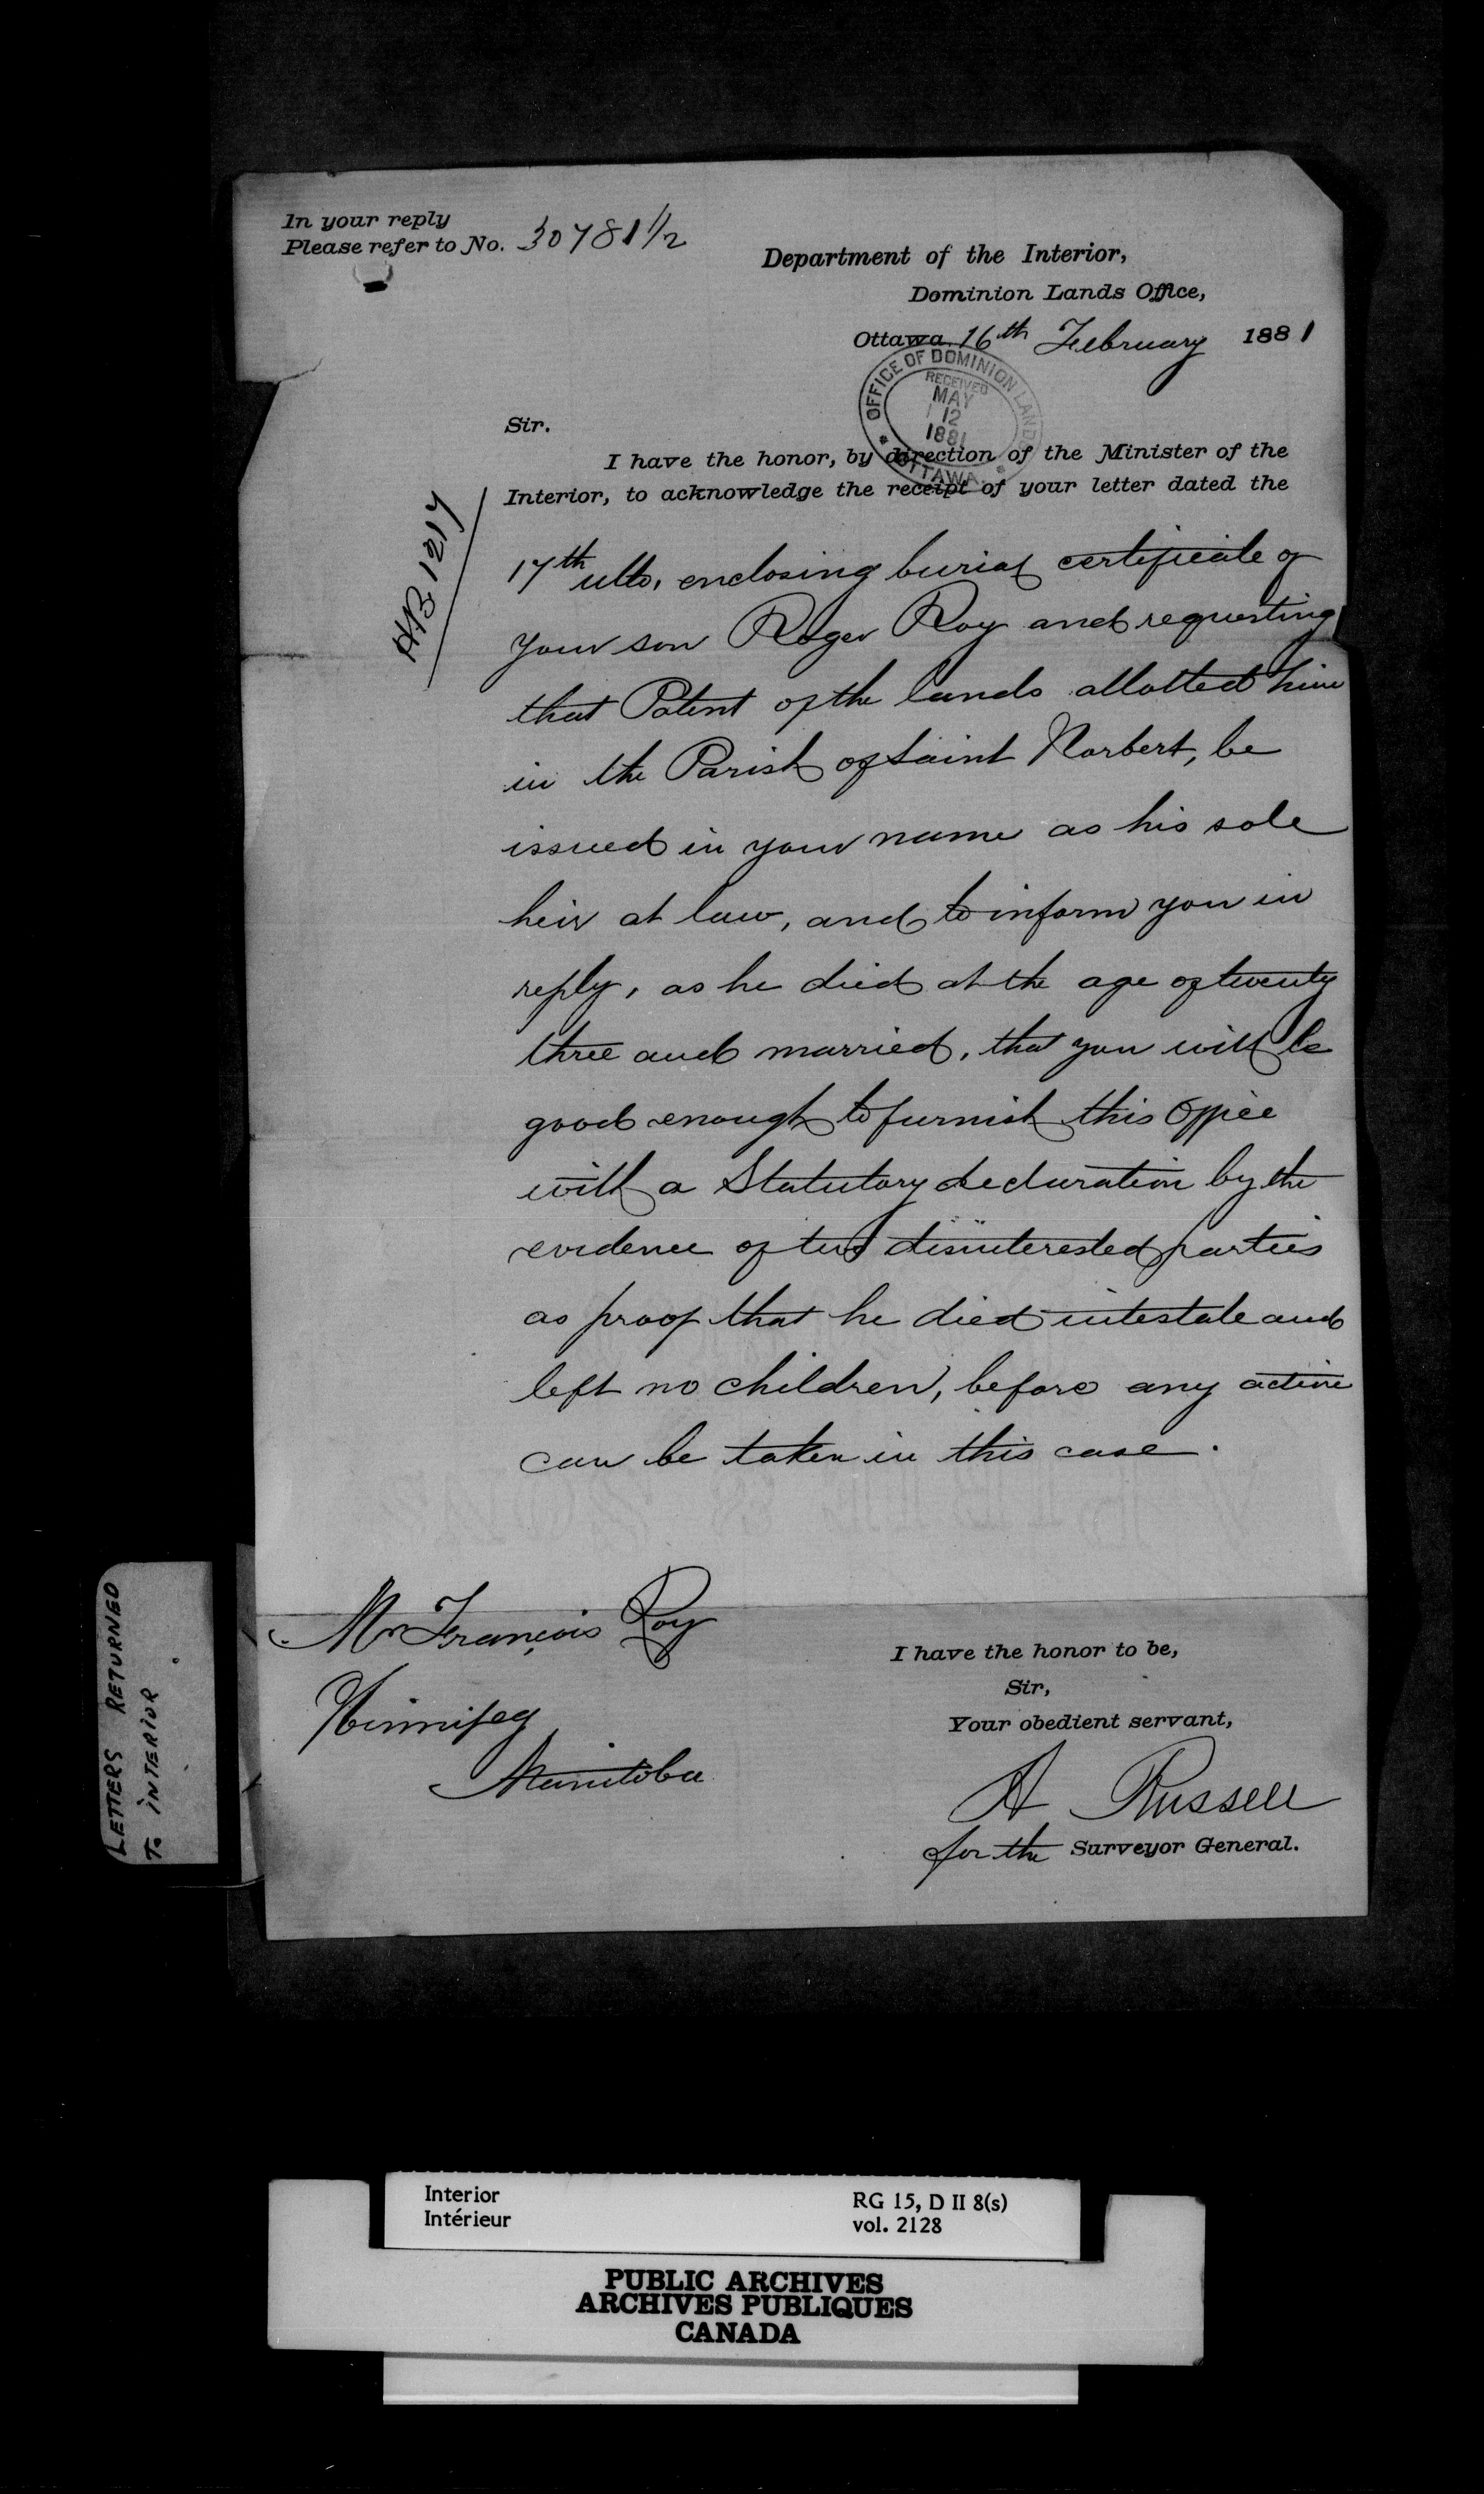 In your reply
Please refer to No. 30781½
Department of the Interior,
Dominion Lands Office,
Ottawa 16th February 1881
OFFICE OF DOMINION LANDS
RECEIVED
MAY
12
1881
OTTAWA
Sir.
I have the honor, by direction of the Minister of the
Interior, to acknowledge the receipt of your letter dated the
HB 1217
17th ulto, enclosing burial certificate of
your son Roger Roy and requesting
that Patent of the lands allotted him
in the Parish of Saint Norbert, be
issued in your name as his sole
heir at law, and to inform you in
reply, as he died at the age of twenty
three and married, that you will be
good enough to furnish this Office
with a Statutory declaration by the
evidence of two disinterested parties
as proof that he died intestate and
left no children, before any action
can be taken in this case.
Mr François Roy
Winnipeg
Manitoba
I have the honor to be,
Sir,
Your obedient servant,
A Russell
for the Surveyor General.
LETTERS RETURNED
To INTERIOR.
Interior
Intérieur
RG 15, D II 8(s)
vol. 2128
PUBLIC ARCHIVES
ARCHIVES PUBLIQUES
CANADA